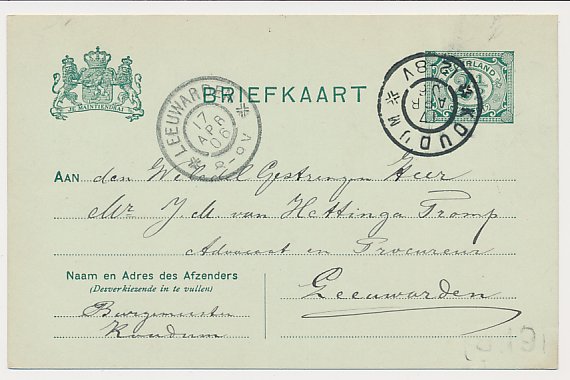 JE MAINTIENDRAI
BRIEFKAART
LEEUWARDEN
17
APR
06
8-9V
KOUDUM
17
APR
NEDERLAND
AAN den Weledel Gestrengen Heer
Mr J. M. van Hettinga Tromp
Advocaat en Procureur
Leeuwarden
Naam en Adres des Afzenders
(Desverkiezende in te vullen)
Burgemeester
Koudum